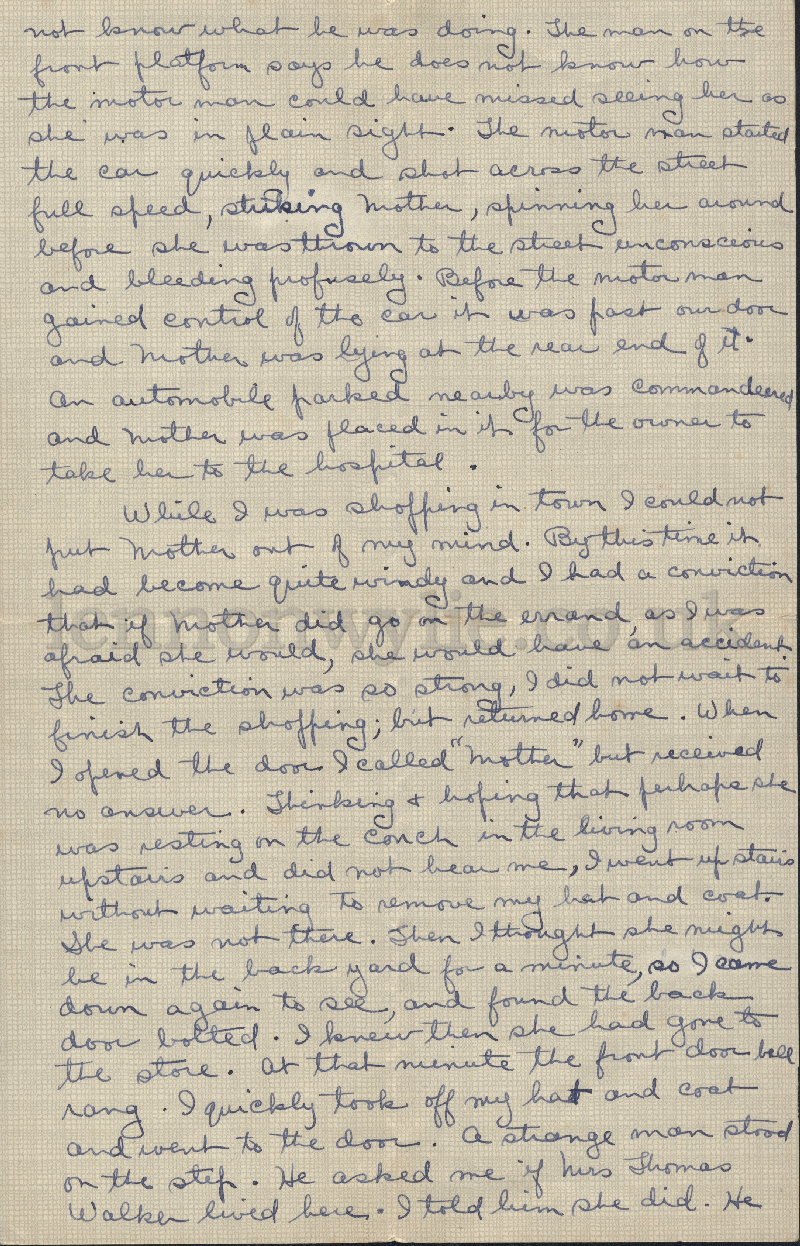 not know what he was doing. The man on the
front platform says he does not know how
the motor man could have missed seeing her as
she was in plain sight. The motor man started
the car quickly and shot across the street
full speed, striking Mother, spinning her around
before she was thrown to the street unconscious
and bleeding profusely. Before the motor man
gained control of the car it was past our door
and Mother was lying at the rear end of it.
An automobile parked nearby was commandeered
and Mother was placed in it for the owner to
take her to the hospital.
While I was shopping in town I could not
put Mother out of my mind. By this time it
had become quite windy and I had a conviction
that if Mother did go on the errand, as I was
afraid she would, she would have an accident
The conviction was so strong, I did not wait to
finish the shopping; but returned home. When
I opened the door I called "Mother" but received
no answer. Thinking & hoping that perhaps she
was resting on the couch in the living room
upstairs and did not hear me, I went upstairs
without waiting to remove my hat and coat.
She was not there. Then I thought she might
be in the back yard for a minute, so I came
down again to see, and found the back
door bolted. I knew then she had gone to
the store. At that minute the front door bell
rang. I quickly took off my hat and coat
and went to the door. A strange man stood
on the step. He asked me if Mrs Thomas
Walker lived here. I told him she did. He
lennonwylie.co.uk